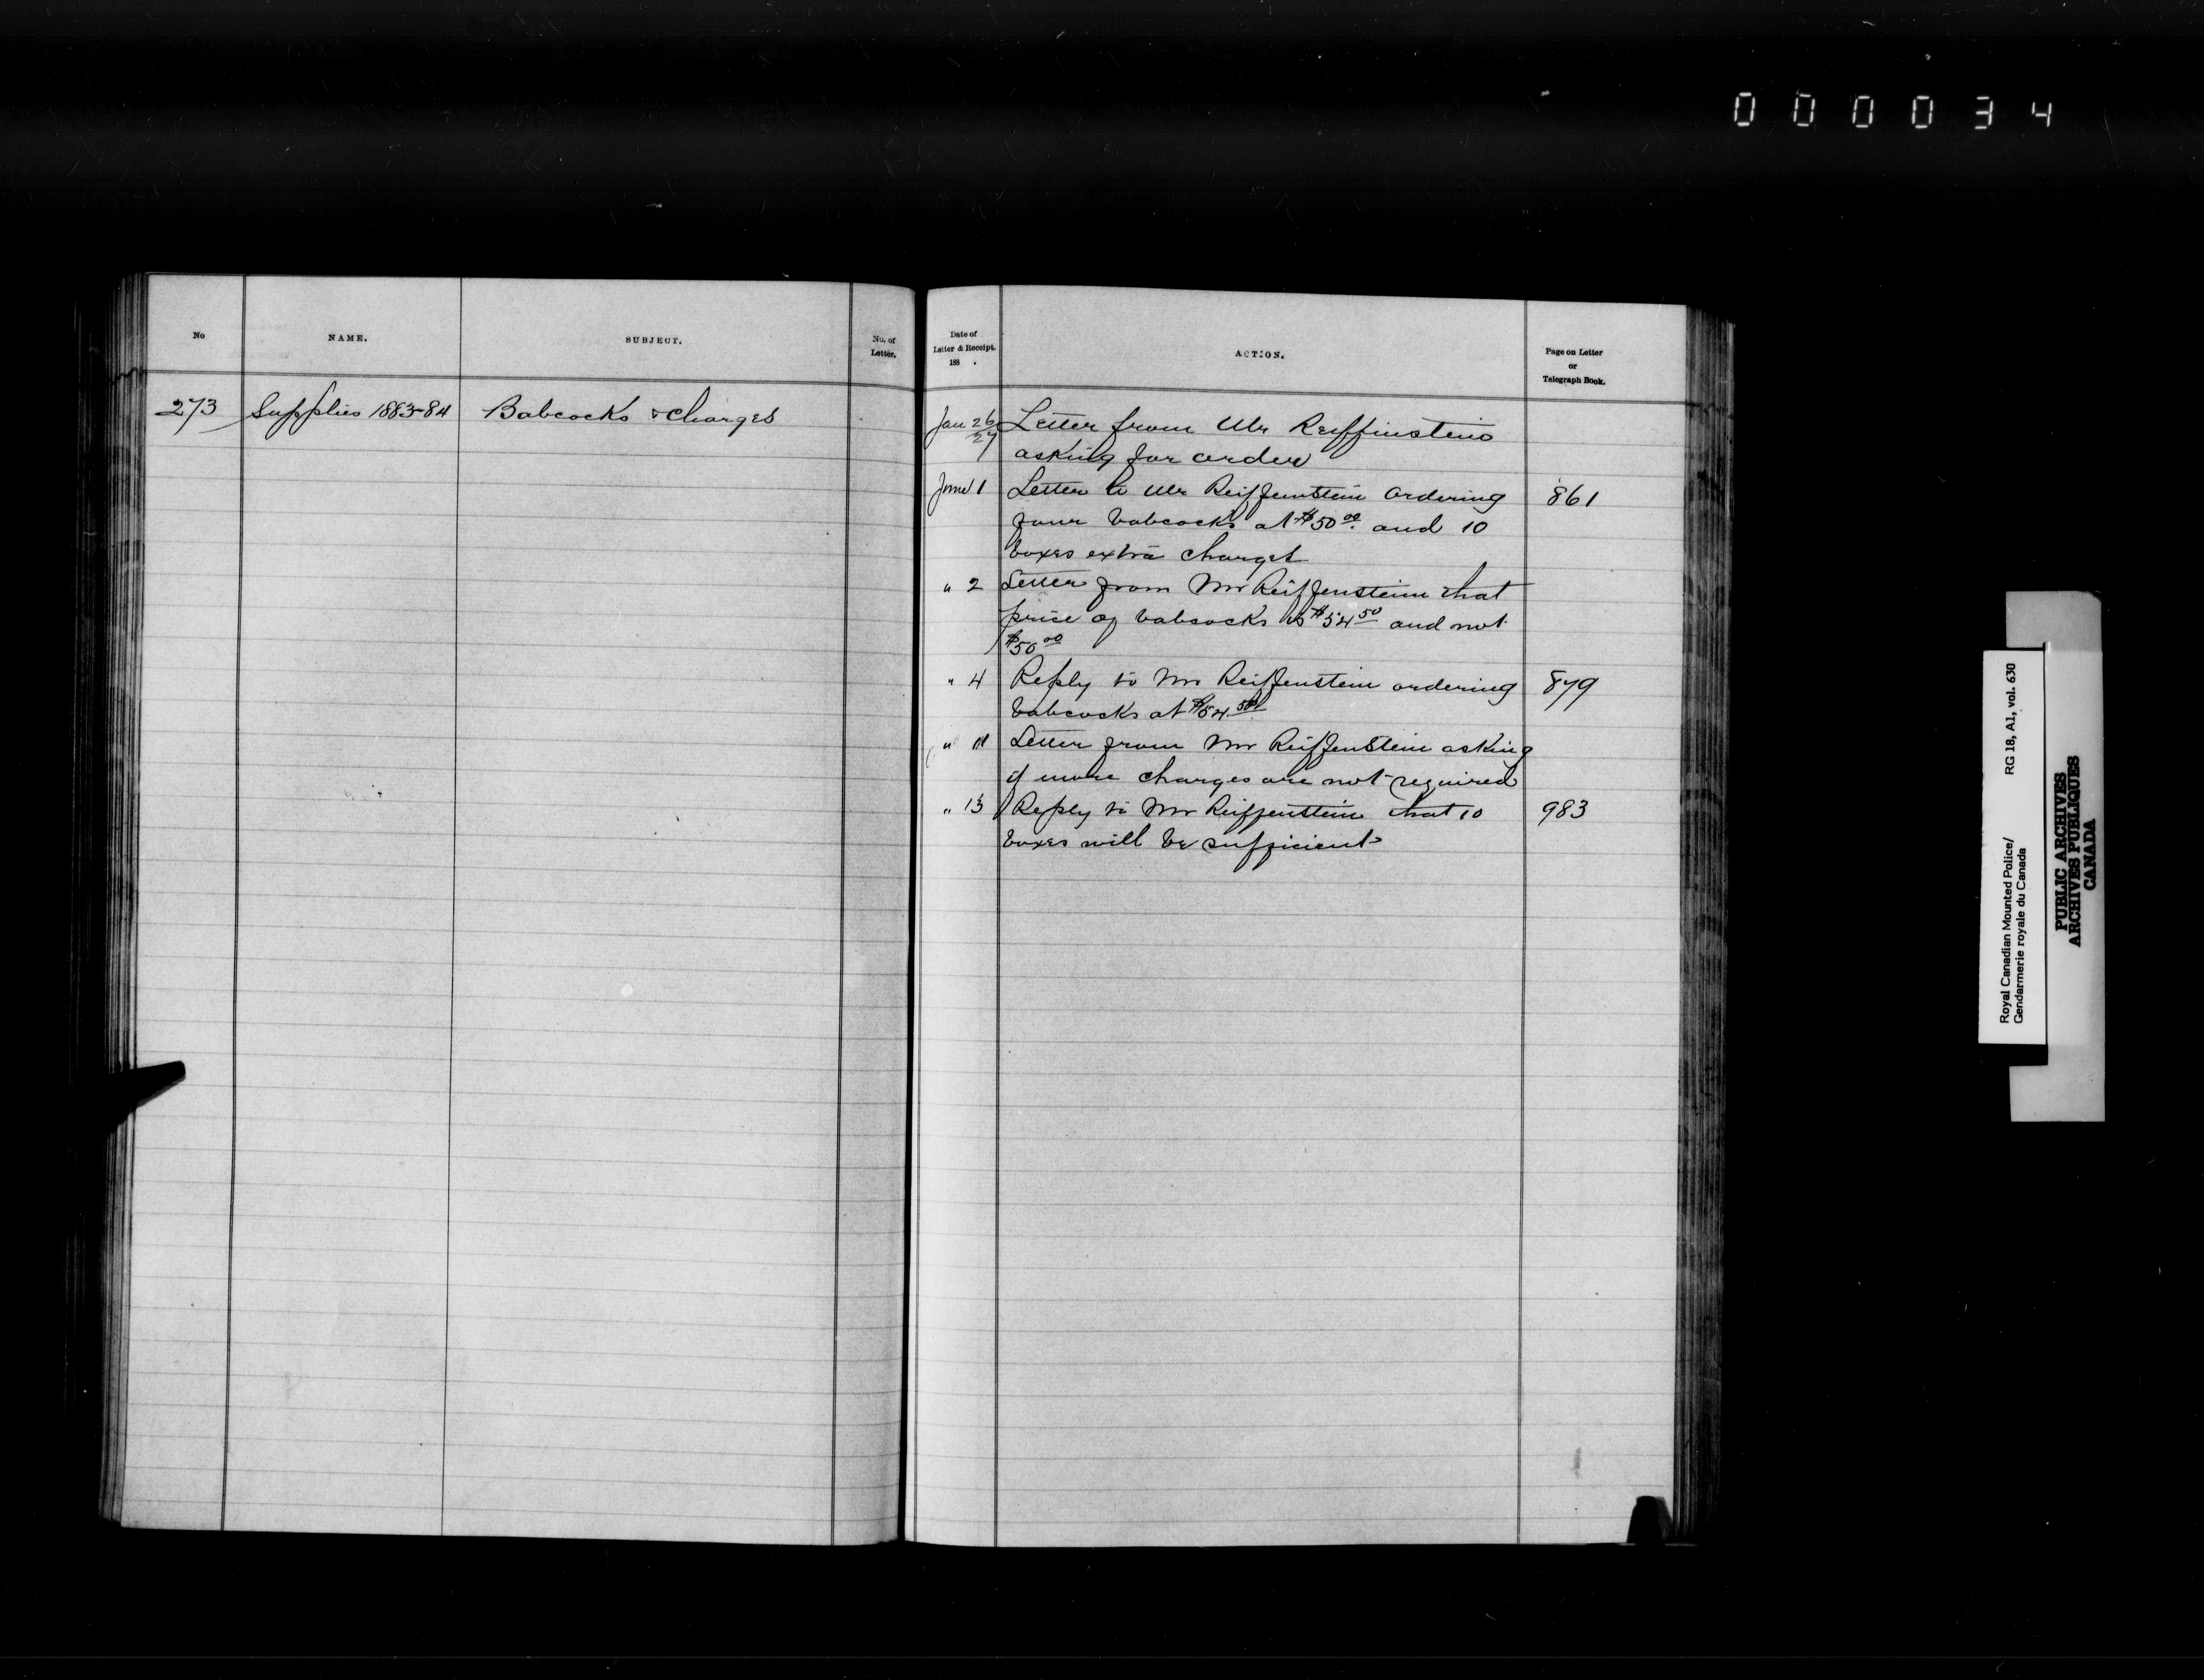 000034
No
NAME.
SUBJECT.
No. of
Letter.
Date of
Letter & Receipt.
188 .
ACTION.
Page on Letter
or
Telegraph Book.
273 Supplies 1883-84 Babcocks & Charges
Jan 26/27 Letter from Mr Reiffinstein
asking for order
June 1 Letter to Mr Reiffenstein ordering 861
four babcocks at $50.00 and 10
boxes extra charges
" 2 Letter from Mr Reiffenstein that
price of babcocks is $54.50 and not
$50.00
" 4 Reply to Mr Reiffenstein ordering 879
babcocks at $54.50
" 11 Letter from Mr Reiffenstein asking
if more charges are not required
" 13 Reply to Mr Reiffenstein that 10 983
boxes will be sufficient
Royal Canadian Mounted Police/ RG 18, A1, vol. 630
Gendarmerie royale du Canada
PUBLIC ARCHIVES
ARCHIVES PUBLIQUES
CANADA